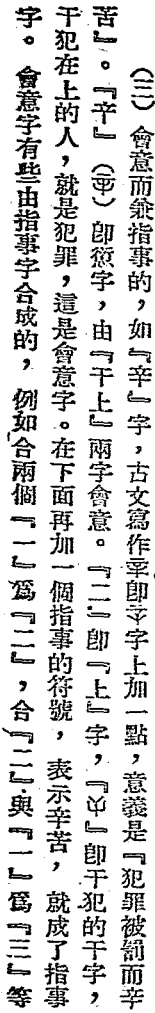 （三）會意而兼指事的，如『辛』字，古文寫作即字上加一點，意義是『犯罪被罰而辛
苦』。『䇂』（）卽愆字，由『干上』兩字會意。『二』卽『上』字，『』卽干犯的干字，
干犯在上的人，就是犯罪，這是會意字。在下面再加一個指事的符號，表示辛苦，就成了指事
字。會意字有些由指事字合成的，例如合兩個『一』爲『二』，合『二』與『一』爲『三』等